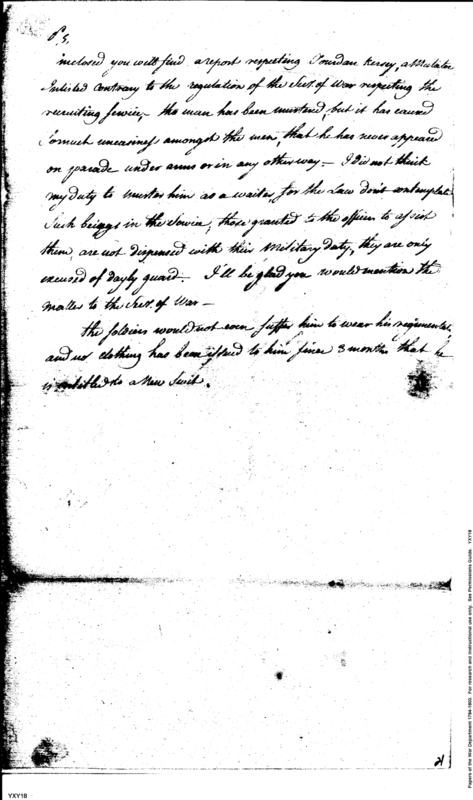 P.S.
inclosed you will find a report respecting Jourdan Kersey, a Mulatoe
Enlisted contrary to the regulation of the Secr. of War respecting the
recruiting service – the man has been mustered, but it has caused
so much uneasiness amongst the men, that he has never appeared
on parade under arms or in any other way – I did not think
my duty to muster him as a waiter, for the Law don't contemplate
such beings in the Service, those granted to the officers to assist
them, are not dispensed with their Military duty, they are only
excused of dayly guard. I'll be glad you would mention the
matter to the Secr. of War –
the soldiers would not even suffer him to wear his regimentals,
and no clothing has been issued to him since 3 months that he
is entitled to a New Suit.
Papers of the War Department 1784-1800. For research and instructional use only. See Permissions Guide. YXY18
YXY18